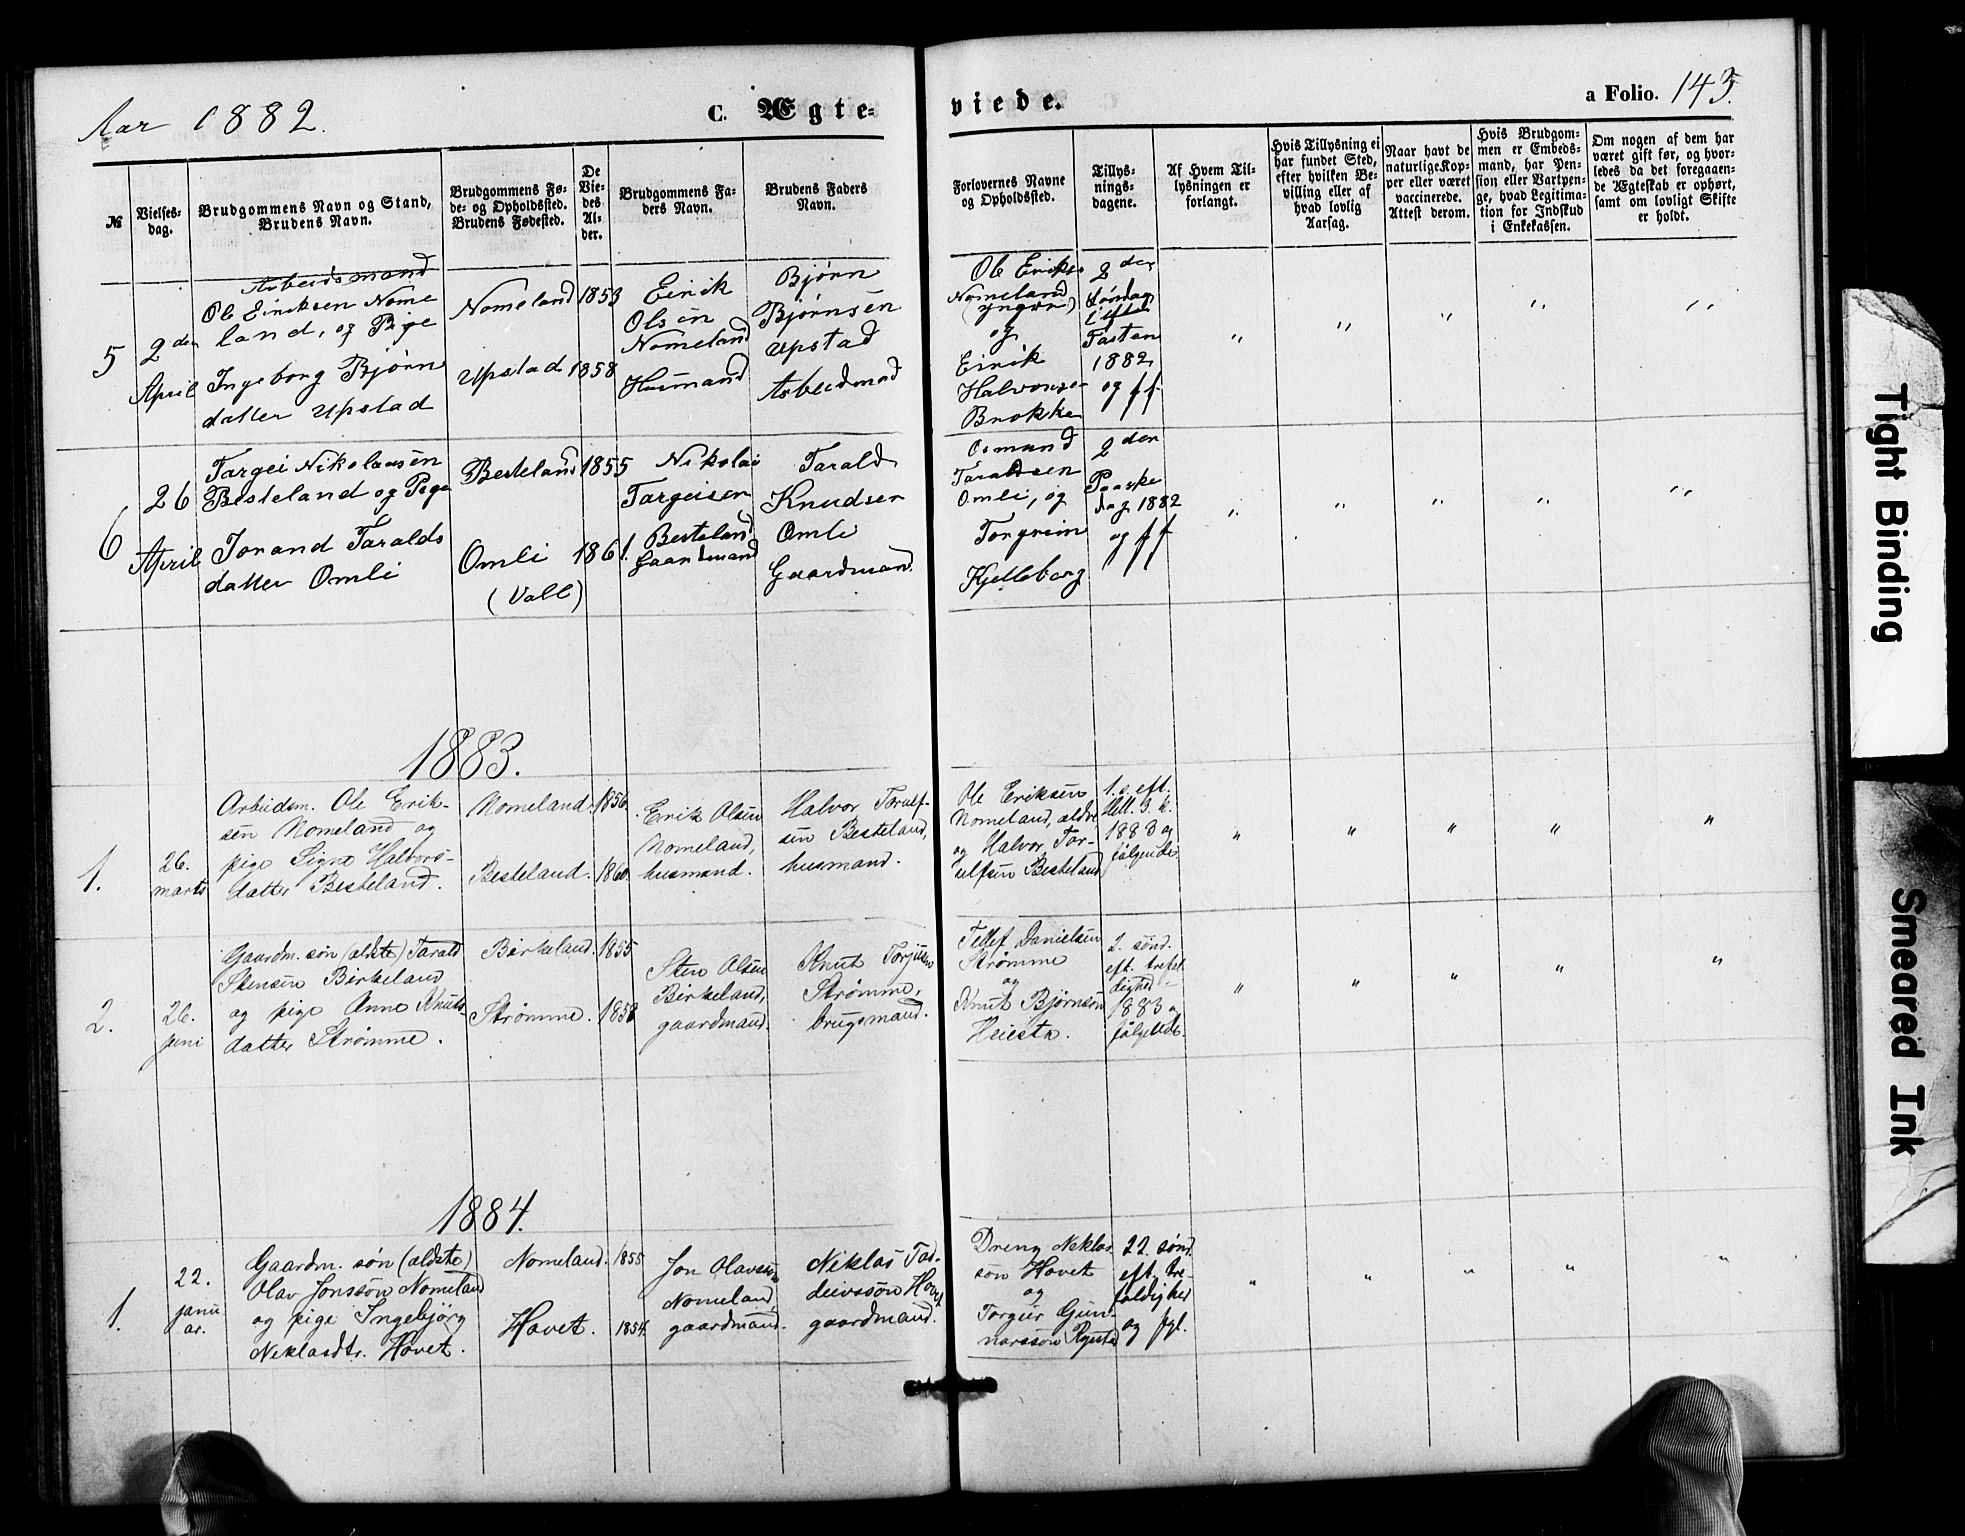 Aar 1882.
C. Ægte-
viede.
a Folio. 143.
№
Vielses-
dag.
Brudgommens Navn og Stand,
Brudens Navn.
Brudgommens Fø-
de- og Opholdssted.
Brudens Fødested.
De
Vie-
des
Al-
der.
Brudgommens Fa-
ders Navn.
Brudens Faders
Navn.
Forlovernes Navne
og Opholdssted.
Tillys-
nings-
dagene.
Af Hvem Til-
lysningen er
forlangt.
Hvis Tillysning ei
har fundet Sted,
efter hvilken Be-
villing eller af
hvad lovlig
Aarsag.
Naar havt de
naturlige Kop-
per eller været
vaccinerede.
Attest derom.
Hvis Brudgom-
men er Embeds-
mand, har Pen-
sion eller Vartpen-
ge, hvad Legitima-
tion for Indskud
i Enkekassen.
Om nogen af dem har
været gift før, og hvor-
ledes da det foregaaen-
de Ægteskab er ophørt,
samt om lovligt Skifte
er holdt.
5
2den
April
Arbeidsmand
Ole Eiriksen Nome
land, og Pige
Ingeborg Bjørns
datter Upstad
Nomeland
Upstad
1853
1858
Eirik
Olsen
Nomeland
Husmand
Bjørn
Bjørnsen
Upstad
Arbeidmad
Ole Eiriks
Nomeland
(yngre)
og
Eirik
Halvorsen
Brokke
2den
Søndag
i
Fasten
1882
og ff
" " " " "
6
26
April
Targei Nikolausen
Besteland og Pige
Jorand Taralds
datter Omli
Besteland
Omli
(Vall)
1855
1861.
Nikolai
Targeisen
Besteland
Gaardmand
Tarald
Knudsen
Omli
Gaardmand.
Osmund
Taraldsen
Omli, og
Torgrim
Kjelleberg
2den
Paaske
dag 1882
og ff
" " " " "
1883.
1.
26.
marts
Arbeidsm. Ole Erik-
sen Nomeland og
pige Signe Halvors-
datter Besteland.
Nomeland.
Besteland.
1856.
1860.
Erik Olsen
Nomeland,
husmand.
Halvor Toralf-
sen Besteland,
husmand.
Ole Eriksen
Nomeland, ældre
og Halvor Tor-
alfsen Besteland
1. s. eft.
Hell. 3 k.
1883 og
følgende.
" " " " "
2.
26.
juni
Gaardm. søn (ældste) Tarald
Stensen Birkeland
og pige Anne Knuts-
datter Strømme.
Birkeland.
Strømme.
1855
1858
Sten Olsen
Birkeland,
gaardmand.
Knut Torjusen
Strømme,
brugsmand.
Tellef Danielsen
Strømme
og
Knut Bjørnsøn
Heiestø.
2. sønd.
eft. trefol
dighed
1883 og
følgende.
" " " " "
1884.
1.
22.
janu
ar.
Gaardm. søn (ældste)
Olav Jonssøn Nomeland
og pige Ingebjørg
Neklasdtr. Hovet.
Nomeland.
Hovet.
1855
1854.
Jon Olavsøn
Nomeland,
gaardmand.
Neklas Tad-
deivssøn Hovet
gaardmand.
Dreng Neklas
søn Hovet
og
Torgur Gun-
narssøn Rysstad
22. sønd.
eft. tre-
foldighed
og fgl.
" " " " "
Tight Binding
Smeared Ink